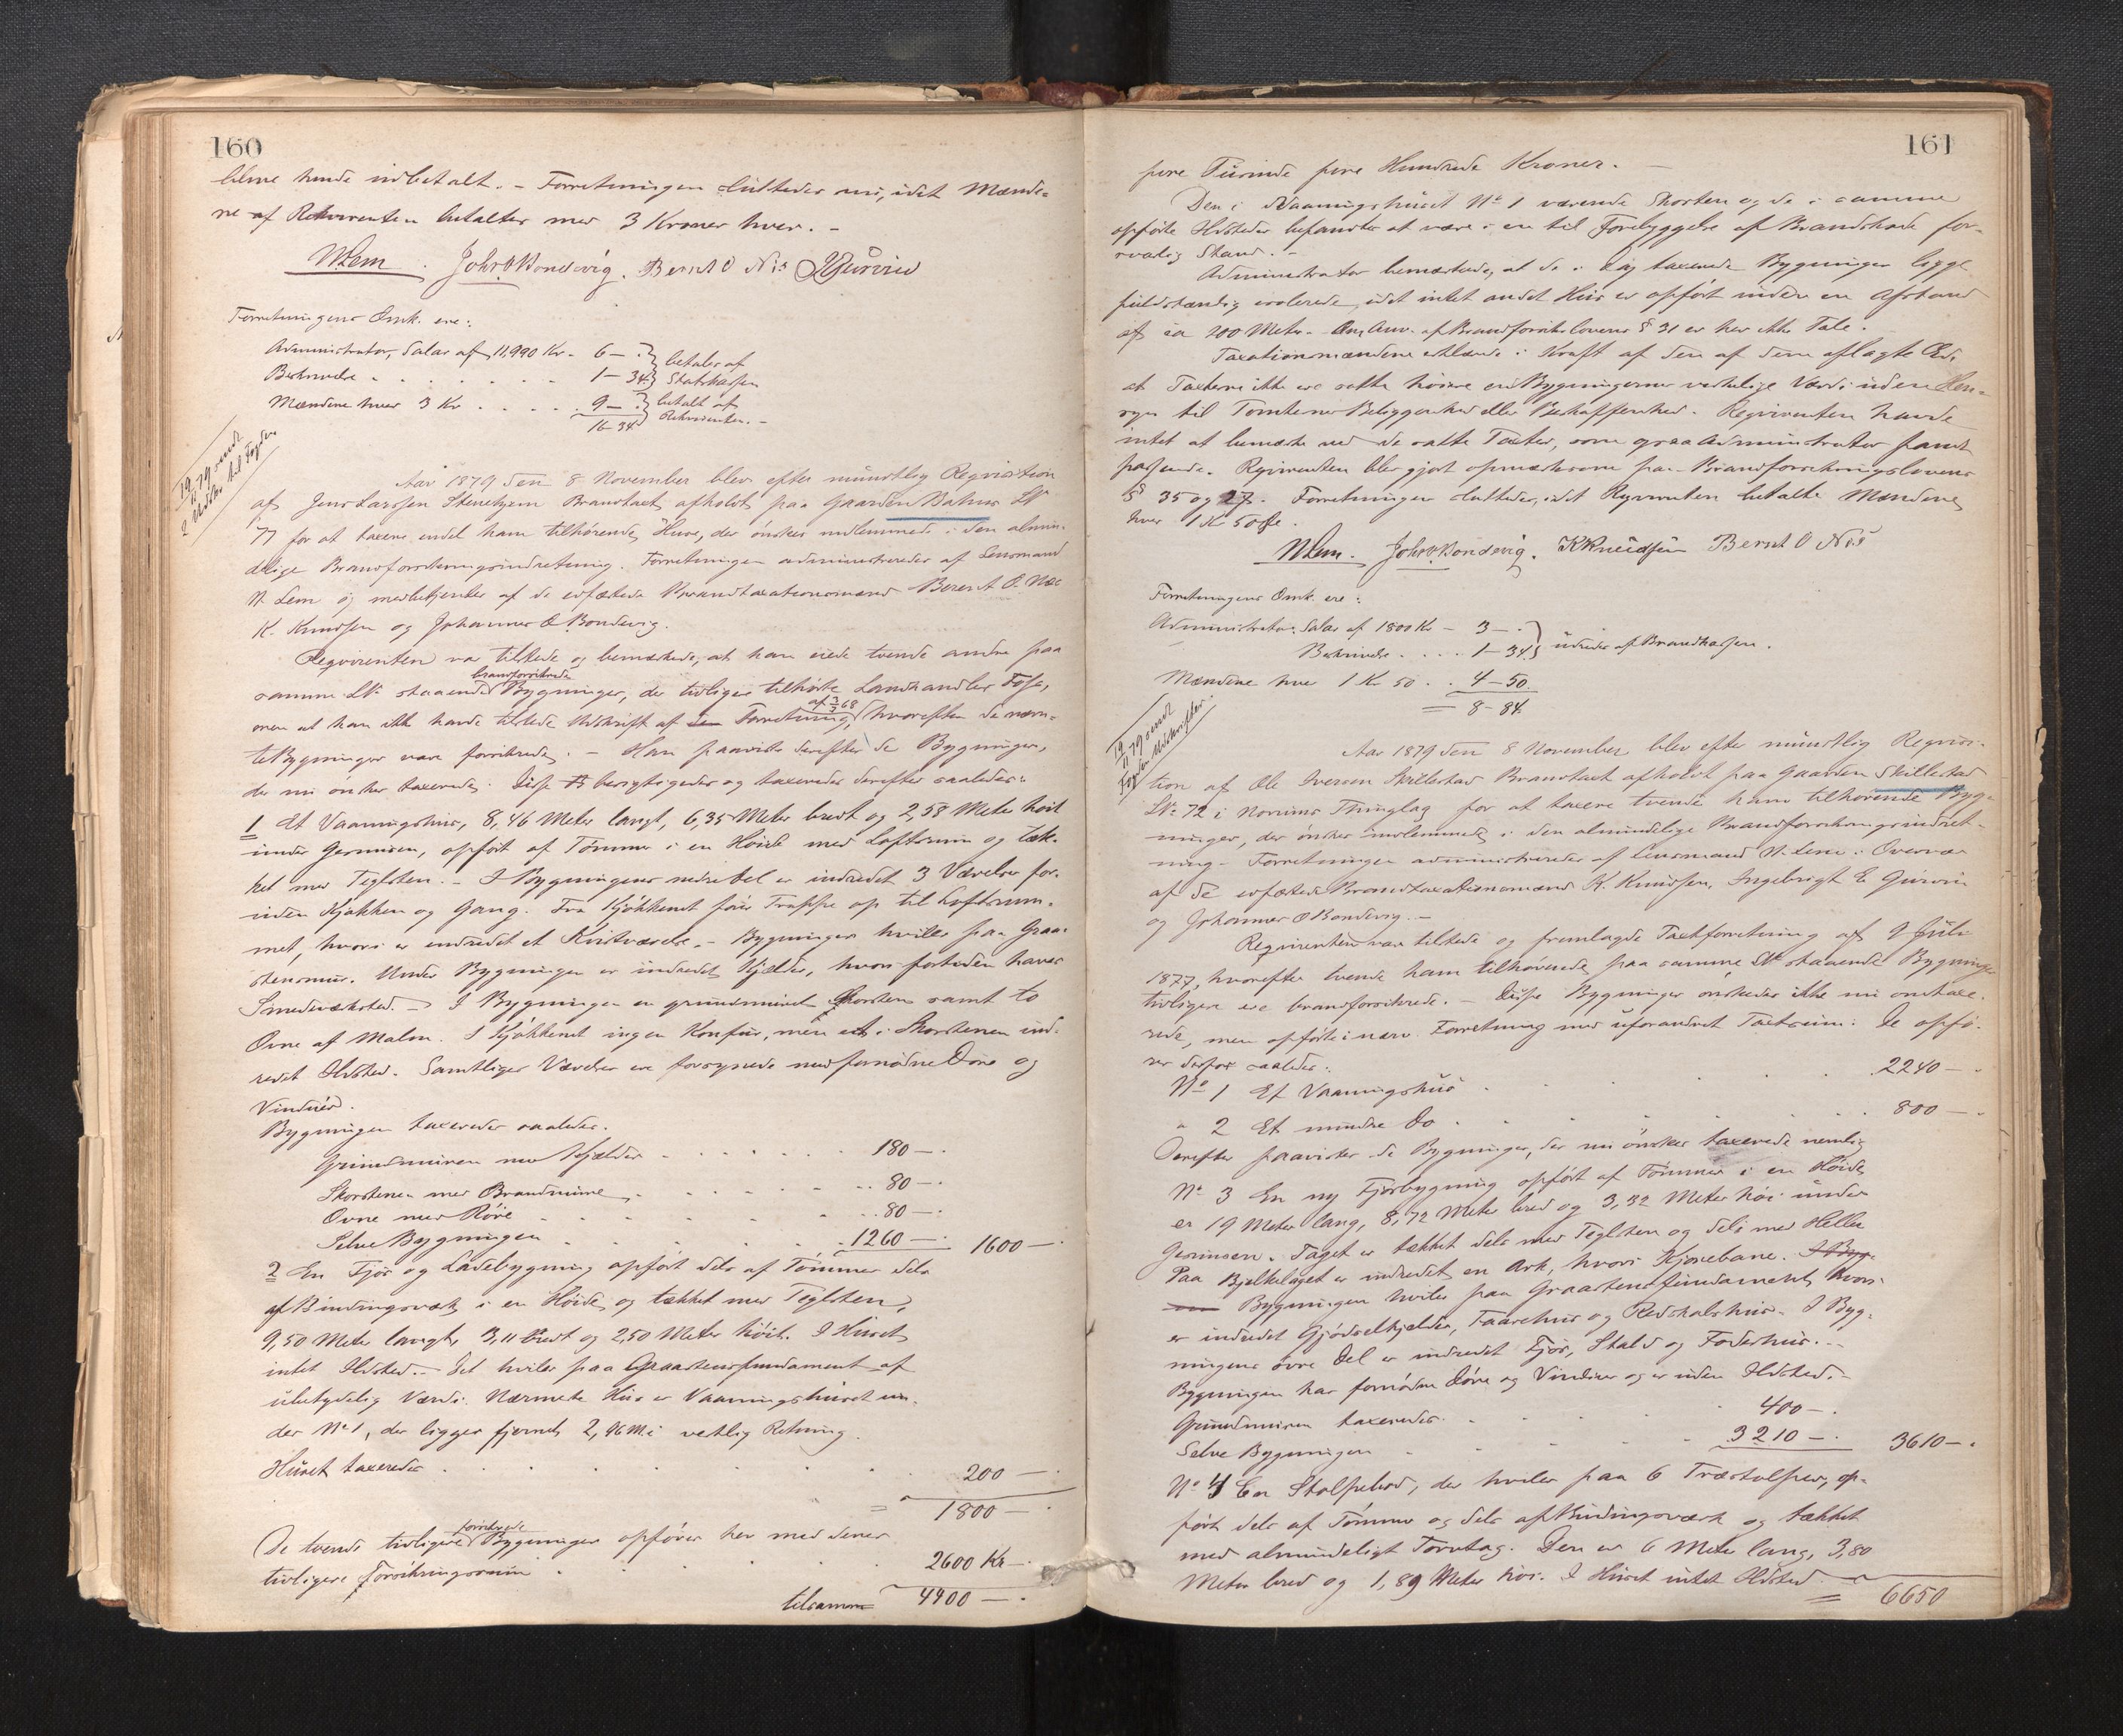 160
blive hende indbetalt. - Forretningen sluttedes nu, idet Mænde-
ne af Rekvirenten betaltes med 3 Kroner hver. -
NLem. JohsOBondevig. Bernt O Nes
Forretningens Omk. ere:
Administrator, Salar af 11,990 Kr. 6 - . betales af
Beskrivelse . . . . . . 1 - 34. Statskassen
Mændene hver 3 Kr . . . . 9 - . betalt af
16-34 Rekvirenten. -
19/11 79 sendt
2 Udskr. til Fogden
Aar 1879 den 8 November blev efter mundtlig Reqvisition
af Jens Larssen Stenehjem Brandtaxt afholdt paa Gaarden LN
77 for at taxere endel ham tilhørende Huse, der ønskes indlemmede i den almin-
delige Brandforsikringsindretning. Forretningen administreredes af Lensmand
N. Lem og medbetjentes af de edfæstede Brandtaxationsmænd Berent O. Næs
K. Knudsen og Johannes O Bondevig.
Reqvirenten var tilstede og bemærkede, at han eiede tvende andre paa
brandforsikrede
samme LN: staaende Bygninger, der tidligere tilhørte Landhandler Foss,
af 3/3 68
men at han ikke havde tilstede Udskrift af den Forretning, hvorefter de nævn-
te Bygninger vare forsikrede. - Han paaviste derefter de Bygninger,
der nu ønskes taxerede. Disse besigtigedes og taxeredes derefter saaledes:
1 Et Vaaningshus, 8,46 Meter langt, 6,35 Meter bredt og 2,58 Meter høit
under Gesimsen, opført af Tømmer i en Høide med Loftsrum og tæk-
ket med Teglsten. - I Bygningens nedre Del er indredet 3 Værelser for-
uden Kjøkken og Gang. Fra Kjøkkenet fører Trappe op til Loftsrum-
met, hvori er indredet et Kvistværelse. - Bygningen hviler paa Graa-
stensmur. Under Bygningen er indredet Kjælder, hvori fortiden haves
Smedeværksted. - I Bygningen er grundmuret Skorsten samt to
Ovne af Malm. I Kjøkkenet ingen Komfur, men et i Skorstenen ind-
redet Ildsted. Samtlige Værelser ere forsynede med fornødne Døre og
Vinduer.
Bygningen taxeredes saaledes.
Grundmuren med Kjælder . . . . . 180 - .
Skorstenen med Brandmure . . . . . 80 - .
Ovne med Røre . . . . . 80 - .
Selve Bygningen . . . . 1260 - . 1600 - .
2 En Fjøs og Ladebygning opført dels af Tømmer dels
af Bindingsværk i en Høide og tækket med Teglsten,
9,50 Meter langt, 3,11 bredt og 2,50 Meter høit. I Huset
intet Ildsted. - Det hviler paa Graastensfundament af
ubetydelig Værdi. Nærmeste Hus er Vaaningshuset un-
der No 1, der ligger fjernet 2,96 M i vestlig Retning.
Huset taxeredes . . . . . 200 - .
= 1800 - .
forsikrede
De tvende tidligere Bygninger opføres her med deres
tidligere Forsikringssum . . . . 2600 Kr - .
tilsammen 4400 - .
161
fire Tusinde fire Hundrede Kroner. -
Den i Vaaningshuset No 1 værende Skorsten og de i samme
opførte Ildsteder befandtes at være i en til Forebyggelse af Brandskade for-
svarlig Stand. -
Administrator bemærkede, at de i Dag taxerede Bygninger ligge
fuldstændig isolerede, idet intet andet Hus er opført inden en Afstand
af ca 100 Meter. Om Anv. af Brandforsikr.lovens § 31 er her ikke Tale.
Taxationsmændene erklærede i Kraft af den af dem aflagte Ed,
at Taxterne ikke ere satte høiere end Bygningernes virkelige Værdi uden Hen-
syn til Tomtens Beliggenhed eller Beskaffenhed. Reqvirenten havde
intet at bemærke ved de satte Taxter, som ogsaa Administrator fandt
passende. Reqvirenten blev gjort opmærksom paa Brandforsikringslovens
§ 35 og 27. Forretningen sluttedes, idet Reqvirenten betalte Mændene
hver 1 Kr 50 Øre.
NLem. JohsOBondevig. KKnudsen Bernt O Nes
Forretningens Omk. ere:
Administrators Salar af 1800 Kr - 3 - .
Beskrivelse . . . . 1 - 34. udredes af Brandkassen.
Mændene hver 1 Kr 50 . . 4 - 50.
= 8 - 84.
19/11 79 sendt
Fogden Udskrifter
Aar 1879 den 8 November blev efter mundtlig Reqvisi-
tion af Ole Iversen Skillestad Brandtaxt afholdt paa Gaarden Skillestad
LN: 72 i Norums Thinglag for at taxere tvende ham tilhørende Byg-
ninger, der ønskes indlemmet i den almindelige Brandforsikringsindret-
ning. Forretningen administreredes af Lensmand N. Lem i Overvær
af de edfæstede Brandtaxationsmænd K. Knudsen, Ingebrigt E Gurvin
og Johannes O Bondevig. -
Reqvirenten var tilstede og fremlagde Taxtforretning af 2 Juli
1877, hvorefter tvende ham tilhørende paa samme LN staaende Bygninger
tidligere ere brandforsikrede. - Disse Bygninger ønskedes ikke nu omtaxe-
rede, men opførte i nærv. Forretning med uforandret Taxtsum: De opfø-
res derfor saaledes:
No 1 Et Vaaningshus . . . . 2240 - .
" 2 Et mindre Do . . . . 800 - .
Derefter paavistes de Bygninger, der nu ønskes taxerede nemlig
No 3 En ny Fjøsbygning opført af Tømmer i en Høide
er 19 Meter lang, 8,72 Meter bred og 3,32 Meter høi under
Gesimsen. Taget er tækket dels med Teglsten og dels med Heller
Paa Bjelkelaget er indredet en Ark, hvori Kjørebane. I Byg-
Bygningen hviler paa Graastensfundament, hvori
er indredet Gjødselkjelder, Faarehus og Redskabshus. I Byg-
ningens øvre Del er indredet Fjøs, Stald og Foderhus. -
Bygningen har fornødne Døre og Vinduer og er uden Ildsted. -
Grundmuren taxeredes . . . . 400 - .
Selve Bygningen . . . . 3210 - . 3610 - .
No 4 En Stolpebod, der hviler paa 6 Træstolper, op-
ført dels af Tømmer og dels af Bindingsværk og tækket
med almindeligt Torvtag. Den er 6 Meter lang, 3,80
Meter bred og 1,89 Meter høi. I Huset intet Ildsted
= 6650